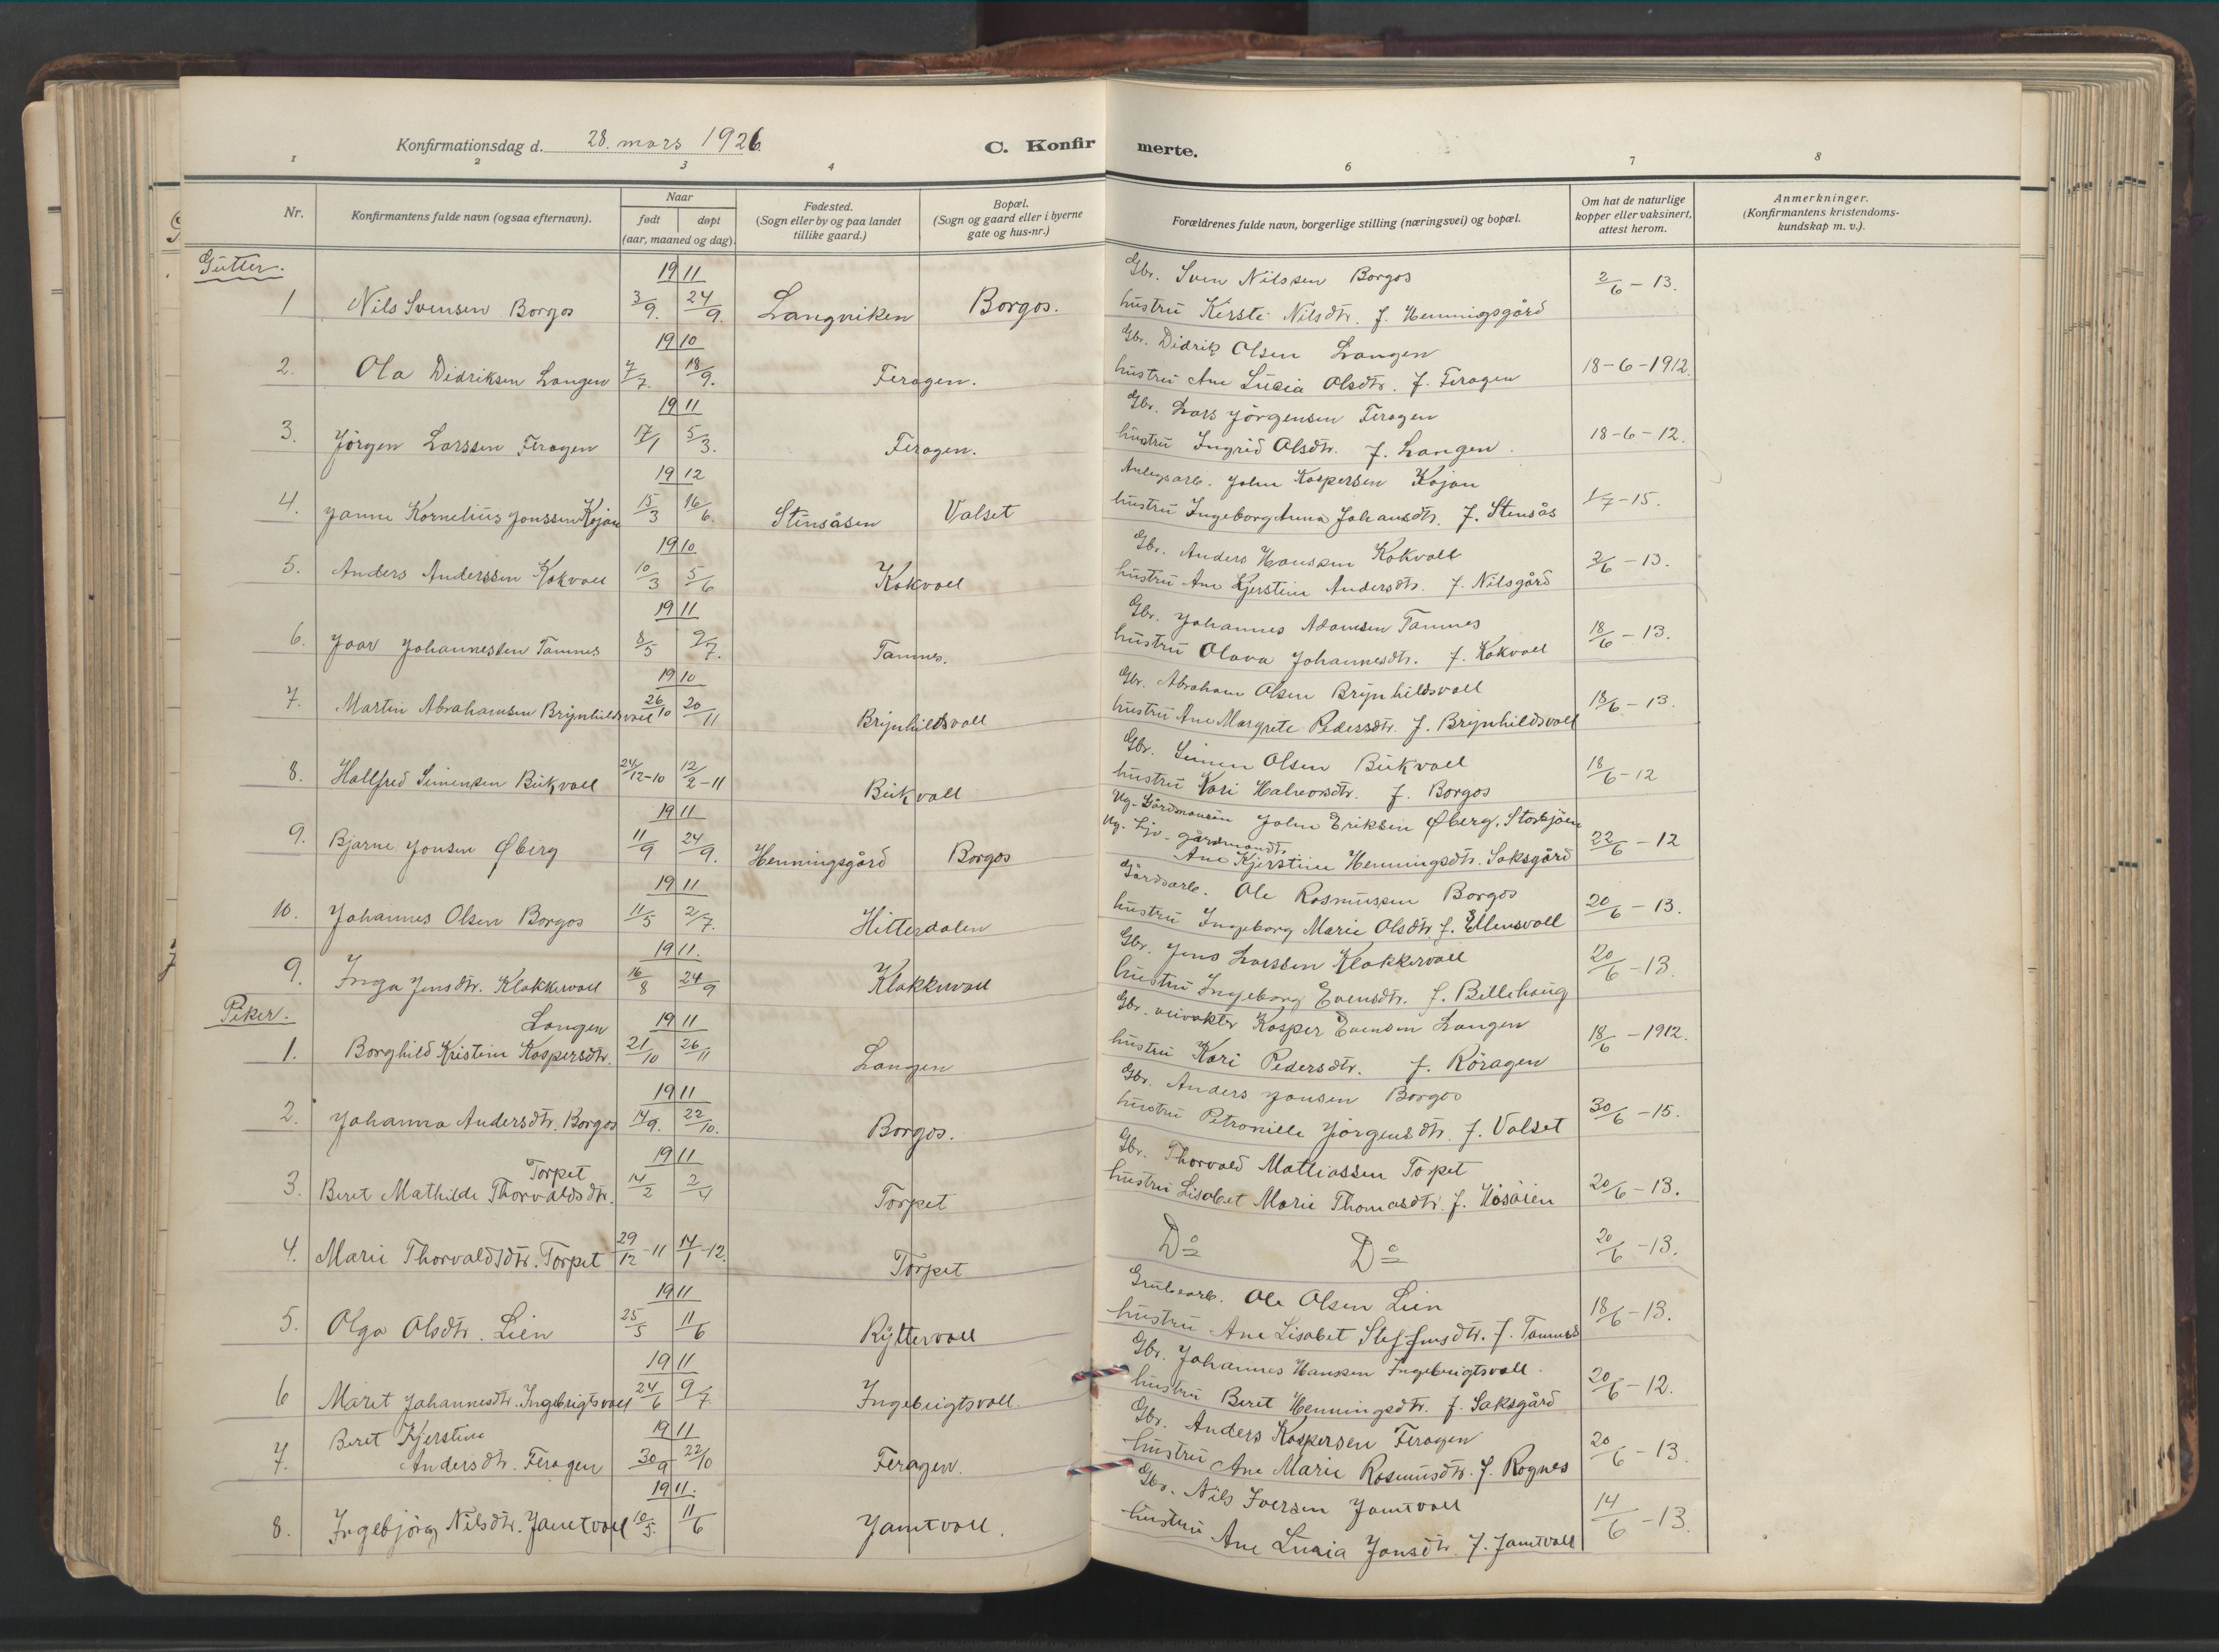 Konfirmationsdag d. 28. mars 1926
C. Konfirmerte.
1 2 3 4 6 7 8
Nr. Konfirmantens fulde navn (ogsaa efternavn). Naar født døpt (aar, maaned og dag). Fødested. (Sogn eller by og paa landet tillike gaard.) Bopæl. (Sogn og gaard eller i byerne gate og hus-nr.) Forældrenes fulde navn, borgerlige stilling (næringsvei) og bopæl. Om hat de naturlige kopper eller vaksinert, attest herom. Anmerkninger. (Konfirmantens kristendomskundskap m. v.).
Gutter.
1911
1 Nils Svensen Borgos 3/9. 24/9. Langviken Borgos. Gbr. Sven Nilssen Borgos 2/6 - 13.
hustru Kirsti Nilsdtr. f. Henningsgård
1910
2. Ola Didriksen Langen 7/7. 18/9. Feragen. Gbr. Didrik Olsen Langen 18-6-1912.
hustru Ane Lucia Olsdtr. f. Feragen
1911
3. Jörgen Larssen Feragen 17/1 5/3. Feragen. Gbr. Lars Jörgensen Feragen 18-6-12.
hustru Ingrid Olsdtr. f. Langen.
1912
4. Janne Kornelius Jonssen Kojan 15/3 16/6. Stensåsen Valset Anlegsarb. John Kaspersen Kojan 1/7-15.
hustru Ingeborg Anna Johansdtr. f. Stensås
1910
5. Anders Anderssen Kokvoll 10/3 5/6 Kokvoll Gbr. Anders Hanssen Kokvoll 2/6 - 13.
hustru Ane Kjerstine Andersdtr. f. Nilsgård
1911
6. Joar Johannessen Tamnes 8/5 9/7. Tamnes. Gbr. Johannes Adamsen Tamnes 18/6 - 13.
hustru Olava Johannesdtr. f. Kokvoll
1910
7. Martin Abrahamsen Brynhildsvoll 26/10 20/11 Brynhildsvoll Gbr. Abraham Olsen Brynhildsvoll 18/6 - 13.
hustru Ane Margrete Pedersdtr. f. Brynhildsvoll
8. Hallfred Simensen Bukvoll 24/12-10 12/2-11 Bukvoll Gbr. Simen Olsen Bukvoll 18/6 - 12
hustru Kari Halvorsdtr. f. Borgos
1911
9. Bjarne Jonsen Øberg 11/9 24/9. Henningsgård Borgos Ug. Gårdmansön John Eriksen Øberg, Storsjöen 22/6 - 12
Ug. gårdmandtr. Ane Kjerstine Henningsdtr. Saksgård
1911
10. Johannes Olsen Borgos 11/5 2/7. Hitterdalen Gårdsarb. Ole Rasmussen Borgos 20/6 - 13.
hustru Ingeborg Marie Olsdtr. f. Ellensvoll
1911.
9. Inga Jensdtr. Klokkervoll 16/8 24/9 Klokkervoll Gbr. Jens Larssen Klokkervoll 20/6 - 13.
hustru Ingeborg Evensdtr. f. Billehaug
Piker.
1911
1. Borghild Kristine Kaspersdtr. Langen 21/10 26/11 Langen Gbr. veivokter Kasper Evensen Langen 18/6 - 1912.
hustru Kari Pedersdtr. f. Röragen
1911
2. Johanna Andersdtr. Borgos 14/9. 22/10. Borgos. Gbr. Anders Jonsen Borgos 30/6 - 15.
hustru Petronille Jörgensdtr. f. Valset
1911
3. Beret Mathilde Thorvaldsdtr. Torpet 14/2 2/4 Torpet Gbr. Thorvald Mattiassen Torpet 20/6 - 13.
hustru Lisabet Marie Thomasdtr. f. Kosåien
4. Marie Thorvaldsdtr. Torpet 29/12-11 14/1-12. Torpet Do Do 20/6 - 13.
1911
5. Olga Olsdtr. Lien 25/5 11/6 Ryttervoll Grubearb. Ole Olsen Lien 18/6 - 13.
hustru Ane Lisabet Steffensdtr. f. Tamnes
1911
6 Marit Johannesdtr. Ingebrigtsvoll 24/6 9/7. Ingebrigtsvoll Gbr. Johannes Hanssen Ingebrigtsvoll. 20/6 - 12.
hustru Beret Henningsdtr. f. Saksgård
1911
7. Beret Kjerstine Andersdtr. Feragen 30/9 22/10 Feragen. Gbr. Anders Kaspersen Feragen 20/6 - 13.
hustru Ane Marie Rasmusdtr. f. Rognes
1911.
8. Ingebjörg Nilsdtr. Jamtvoll 10/5. 11/6 Jamtvoll. Gbr. Nils Iversen Jamtvoll 14/6 - 13.
hustru Ane Lucia Jonsdtr. f. Jamtvoll